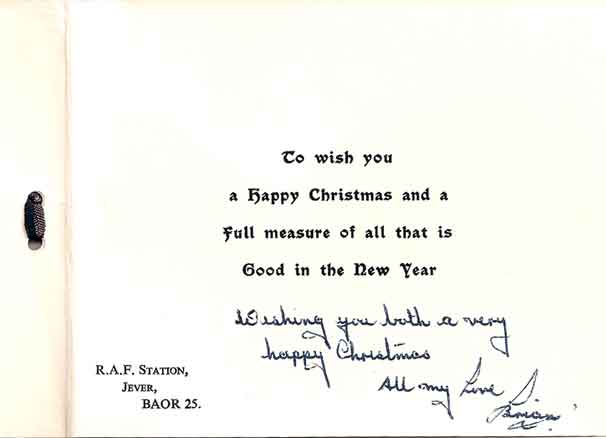 To wish you
a Happy Christmas and a
Full measure of all that is
Good in the New Year
Wishing you both a very
happy Christmas
All my Love
Brian
R.A.F. Station,
Jever,
BAOR 25.